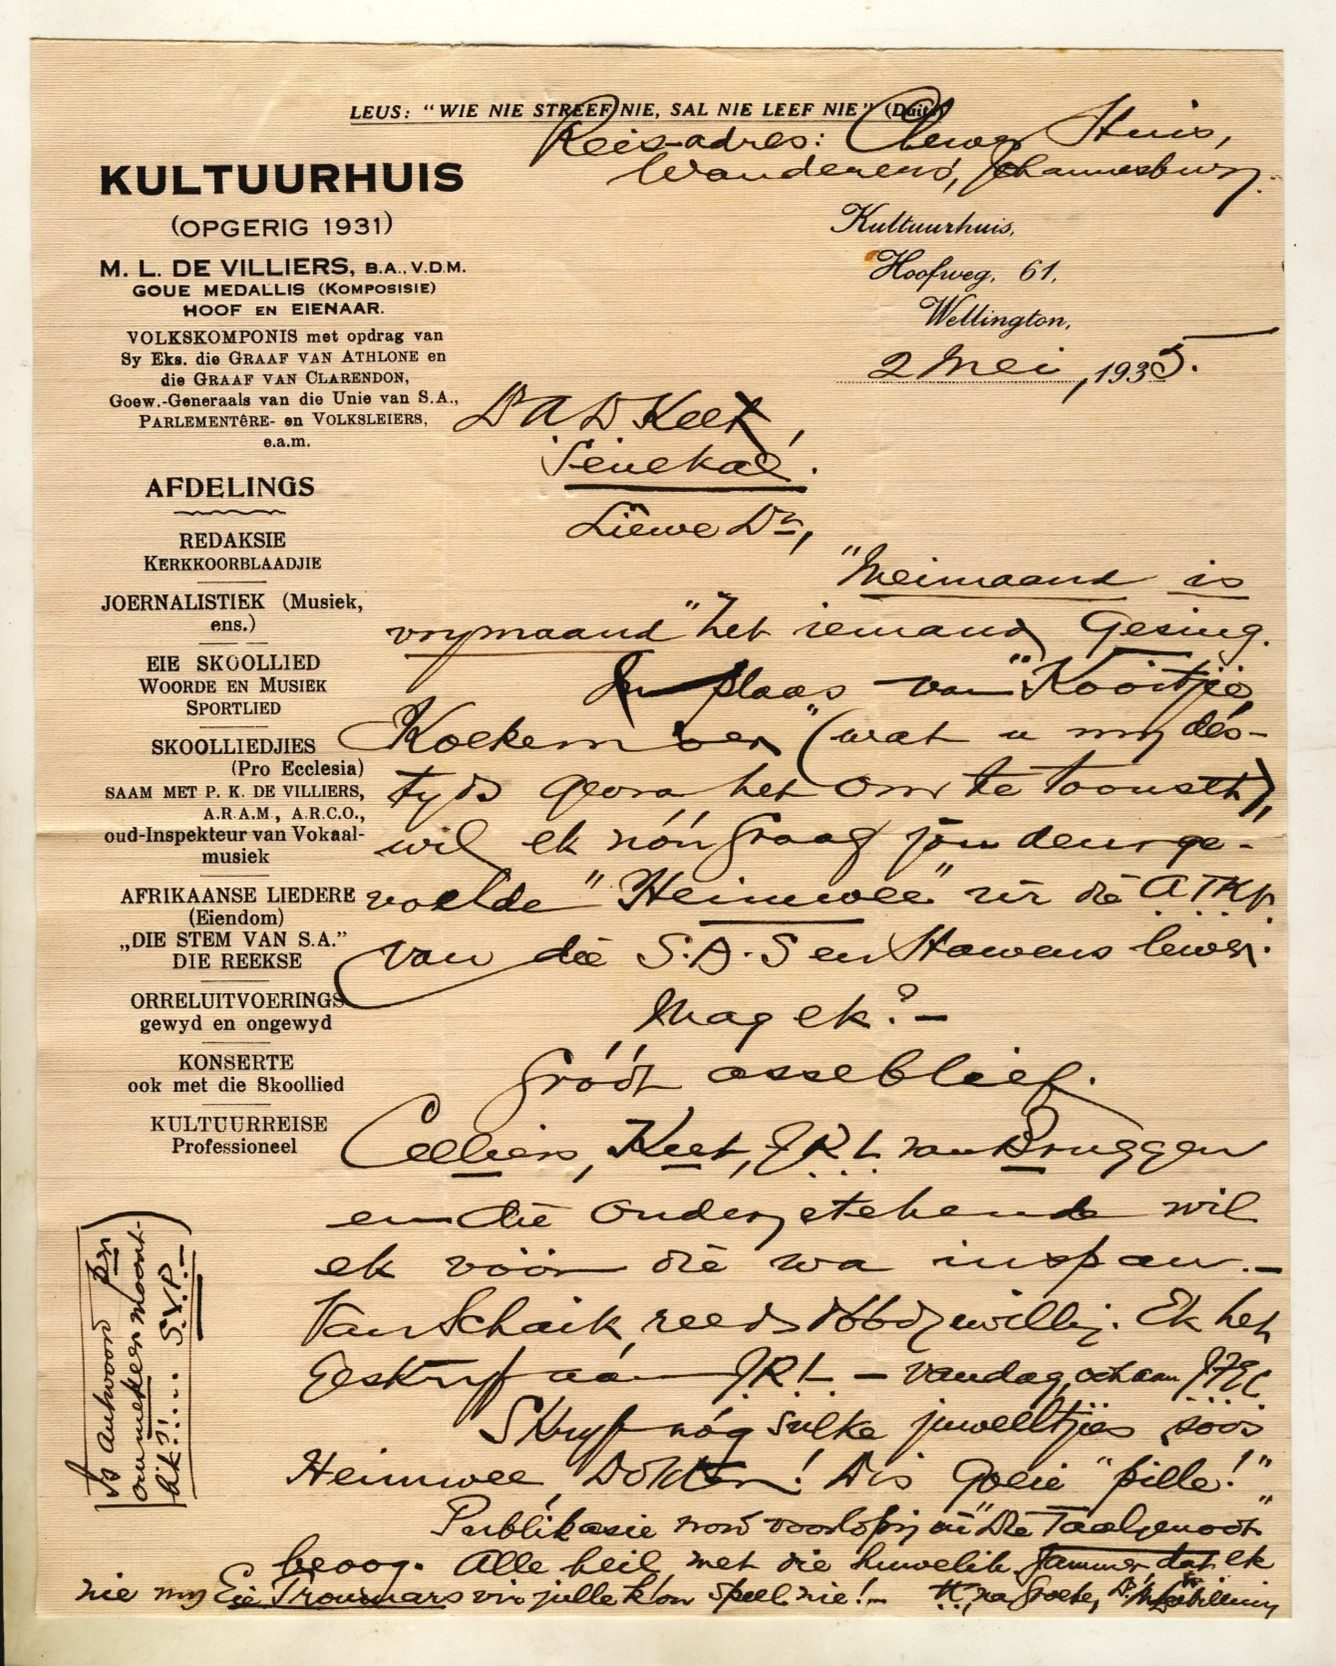 LEUS: "WIE NIE STREEF NIE, SAL NIE LEEF NIE" (Duits)
Reis-adres: Huis,
Wanderers, Johannesburg.
KULTUURHUIS
(OPGERIG 1931)
M. L. DE VILLIERS, B.A., V.D.M.
GOUE MEDALLIS (KOMPOSISIE)
HOOF EN EIENAAR.
VOLKSKOMPONIS met opdrag van
Sy Eks. die GRAAF VAN ATHLONE en
die GRAAF VAN CLARENDON,
Goew.-Generaals van die Unie van S.A.,
PARLEMENTÊRE- en VOLKSLEIERS,
e.a.m.
AFDELINGS
REDAKSIE
KERKKOORBLAADJIE
JOERNALISTIEK (Musiek,
ens.)
EIE SKOOLLIED
WOORDE EN MUSIEK
SPORTLIED
SKOOLLIEDJIES
(Pro Ecclesia)
SAAM MET P. K. DE VILLIERS,
A.R.A.M., A.R.C.O.,
oud-Inspekteur van Vokaal-
musiek
AFRIKAANSE LIEDERE
(Eiendom)
„DIE STEM VAN S.A."
DIE REEKSE
ORRELUITVOERINGS
gewyd en ongewyd
KONSERTE
ook met die Skoollied
KULTUURREISE
Professioneel
Kultuurhuis,
Hoofweg, 61,
Wellington,
2 Mei, 1935.
Dr A D Keet,
Senekal.
Liewe Dr,
"Meimaand is
vrymaand" het iemand gesing.
In plaas van "Kootjie
Koekemoer" (wat u my des-
tyds gevra het om te toonset),
wil ek nóu graag jou deurge-
voelde "Heimwee" vir die ATKV
van die S.A.S en Hawens lewer.
Mag ek? –
Gróót asseblief.
Celliers, Keet, J.R.L. van Bruggen
en die ondergetekende wil
ek vóór die wa inspan. –
Van Schaik reeds willig. Ek het
Geskryf aan J.R.L. – vandag, ook aan
Skryf nóg sulke juweeltjies soos
Heimwee, Dokter! Dis goeie "pille!"
Publikasie word voorlopig in "Die Taalgenoot"
beoog. Alle heil met die huwelik. Jammer dat ek
nie my Eie Troumars vir julle kon speel nie! – na Groete, de Villiers
Is antwoord per
ommekeer moont-
lik?!.... S.V.P. –